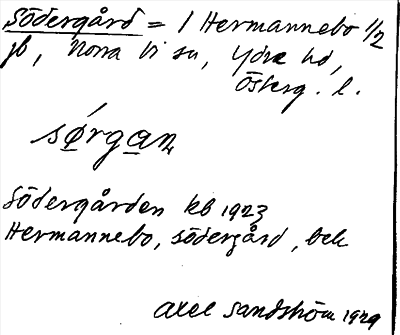 Södergård = 1 Hermannebo 1/2
jb, Norra Vi sn, Ydre hd,
Österg. l.
sørgan
Södergården kb 1923
Hermannebo, södergård, bek
Axel Sandström 1929